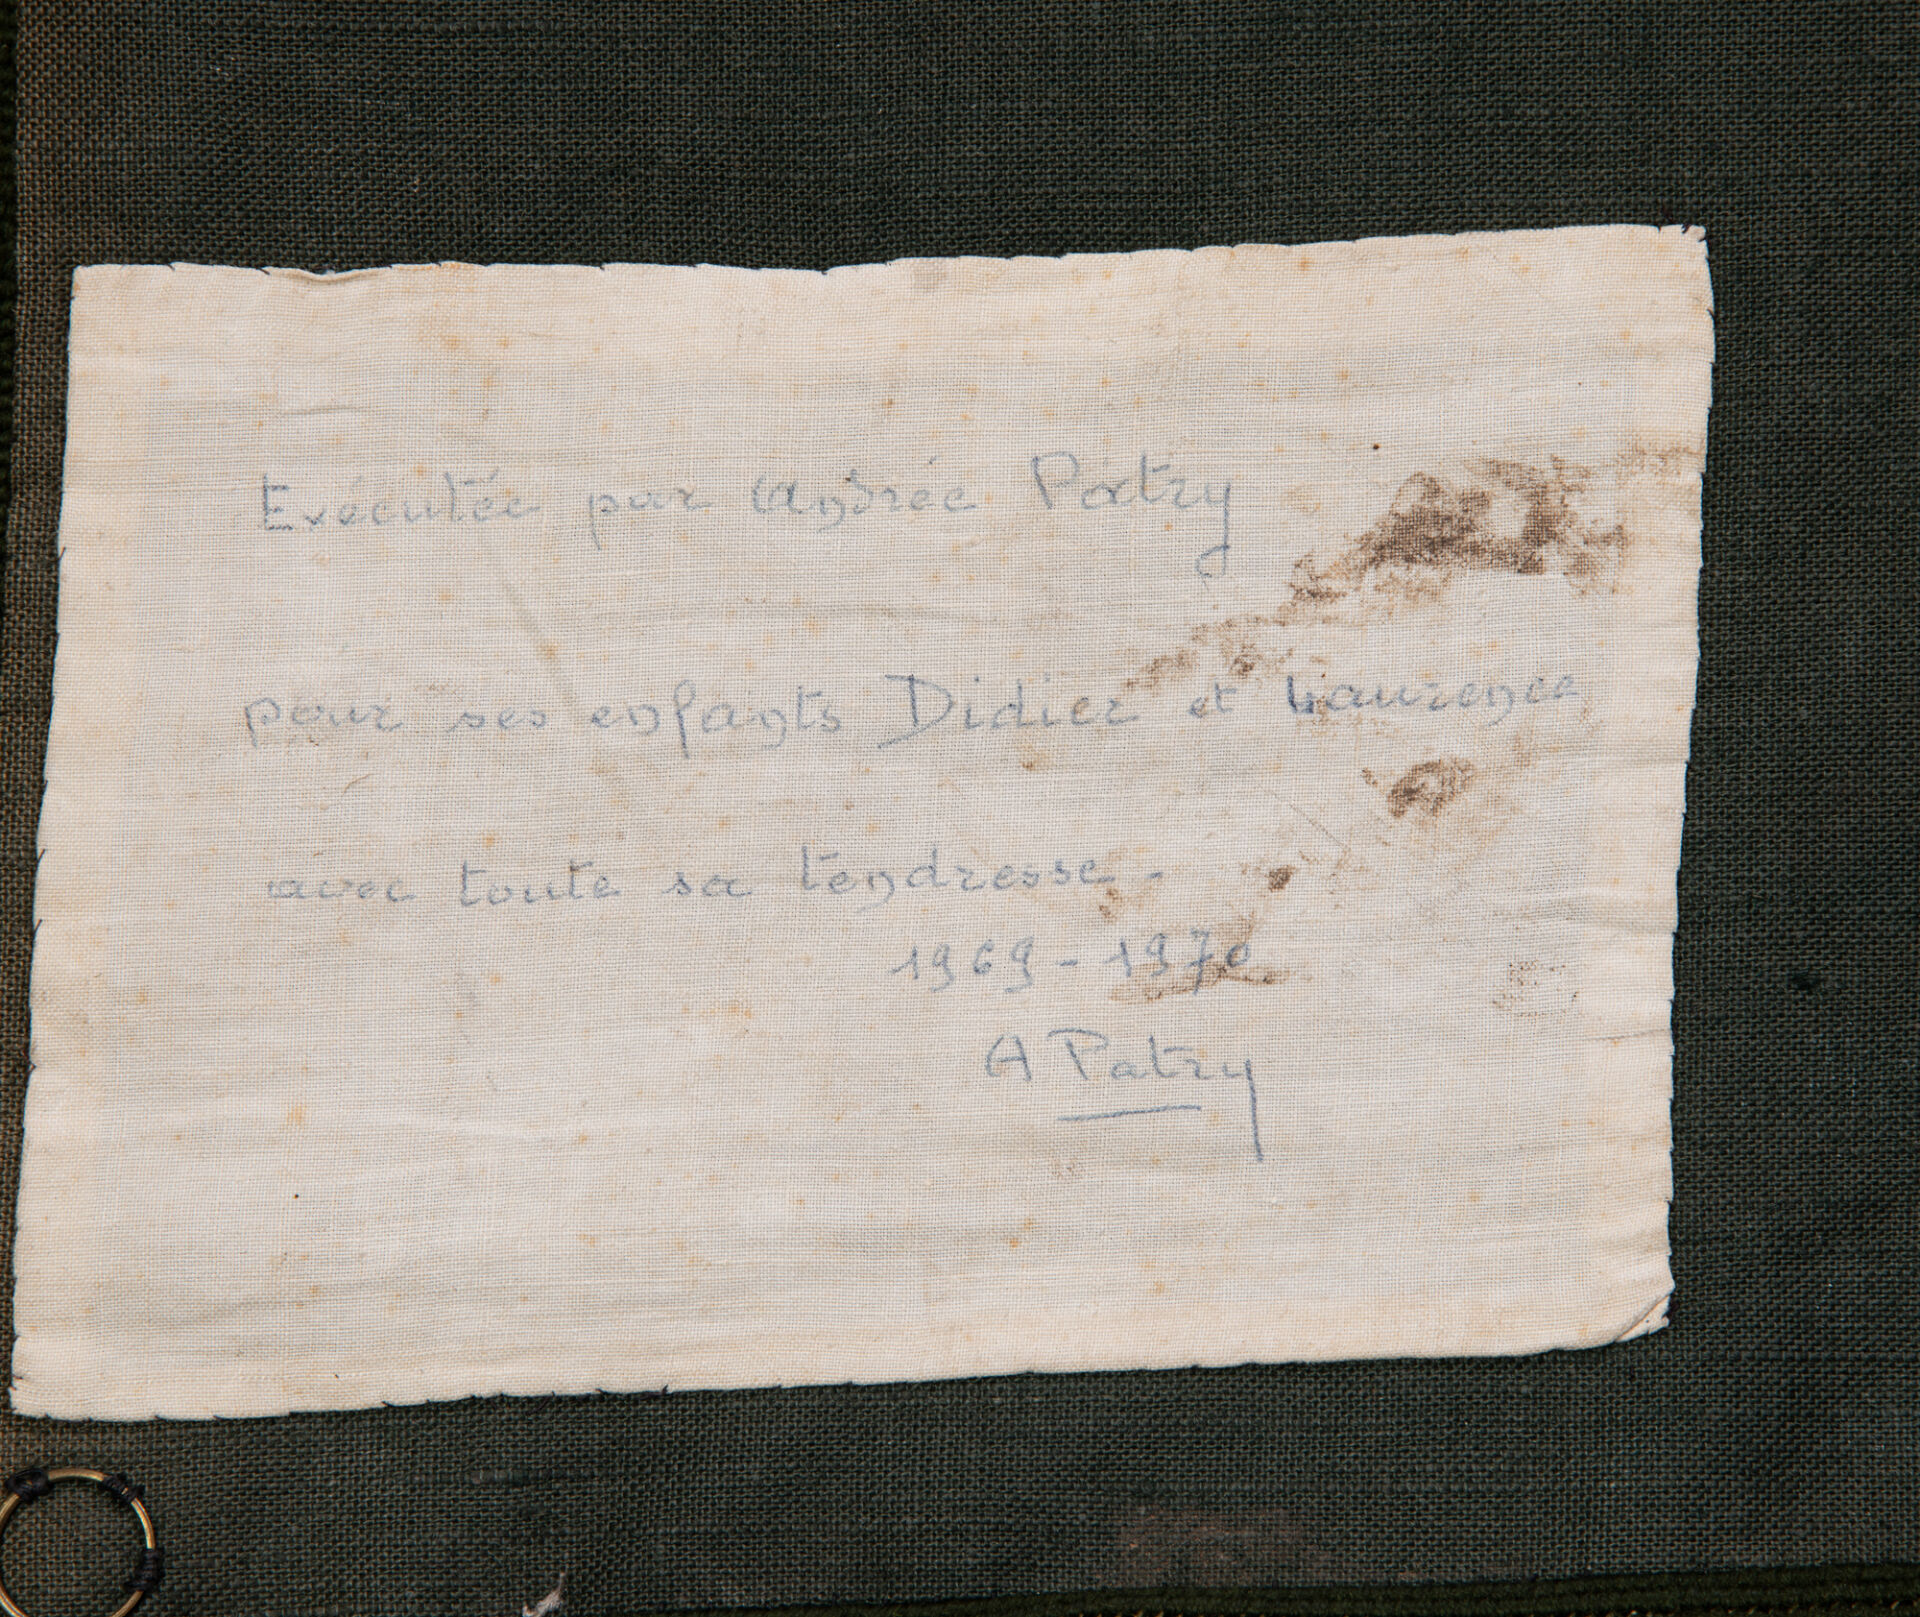 Exécutée par Andrée Patry
pour ses enfants Didier et Laurence
avec toute sa tendresse -
1969 - 1970
A Patry